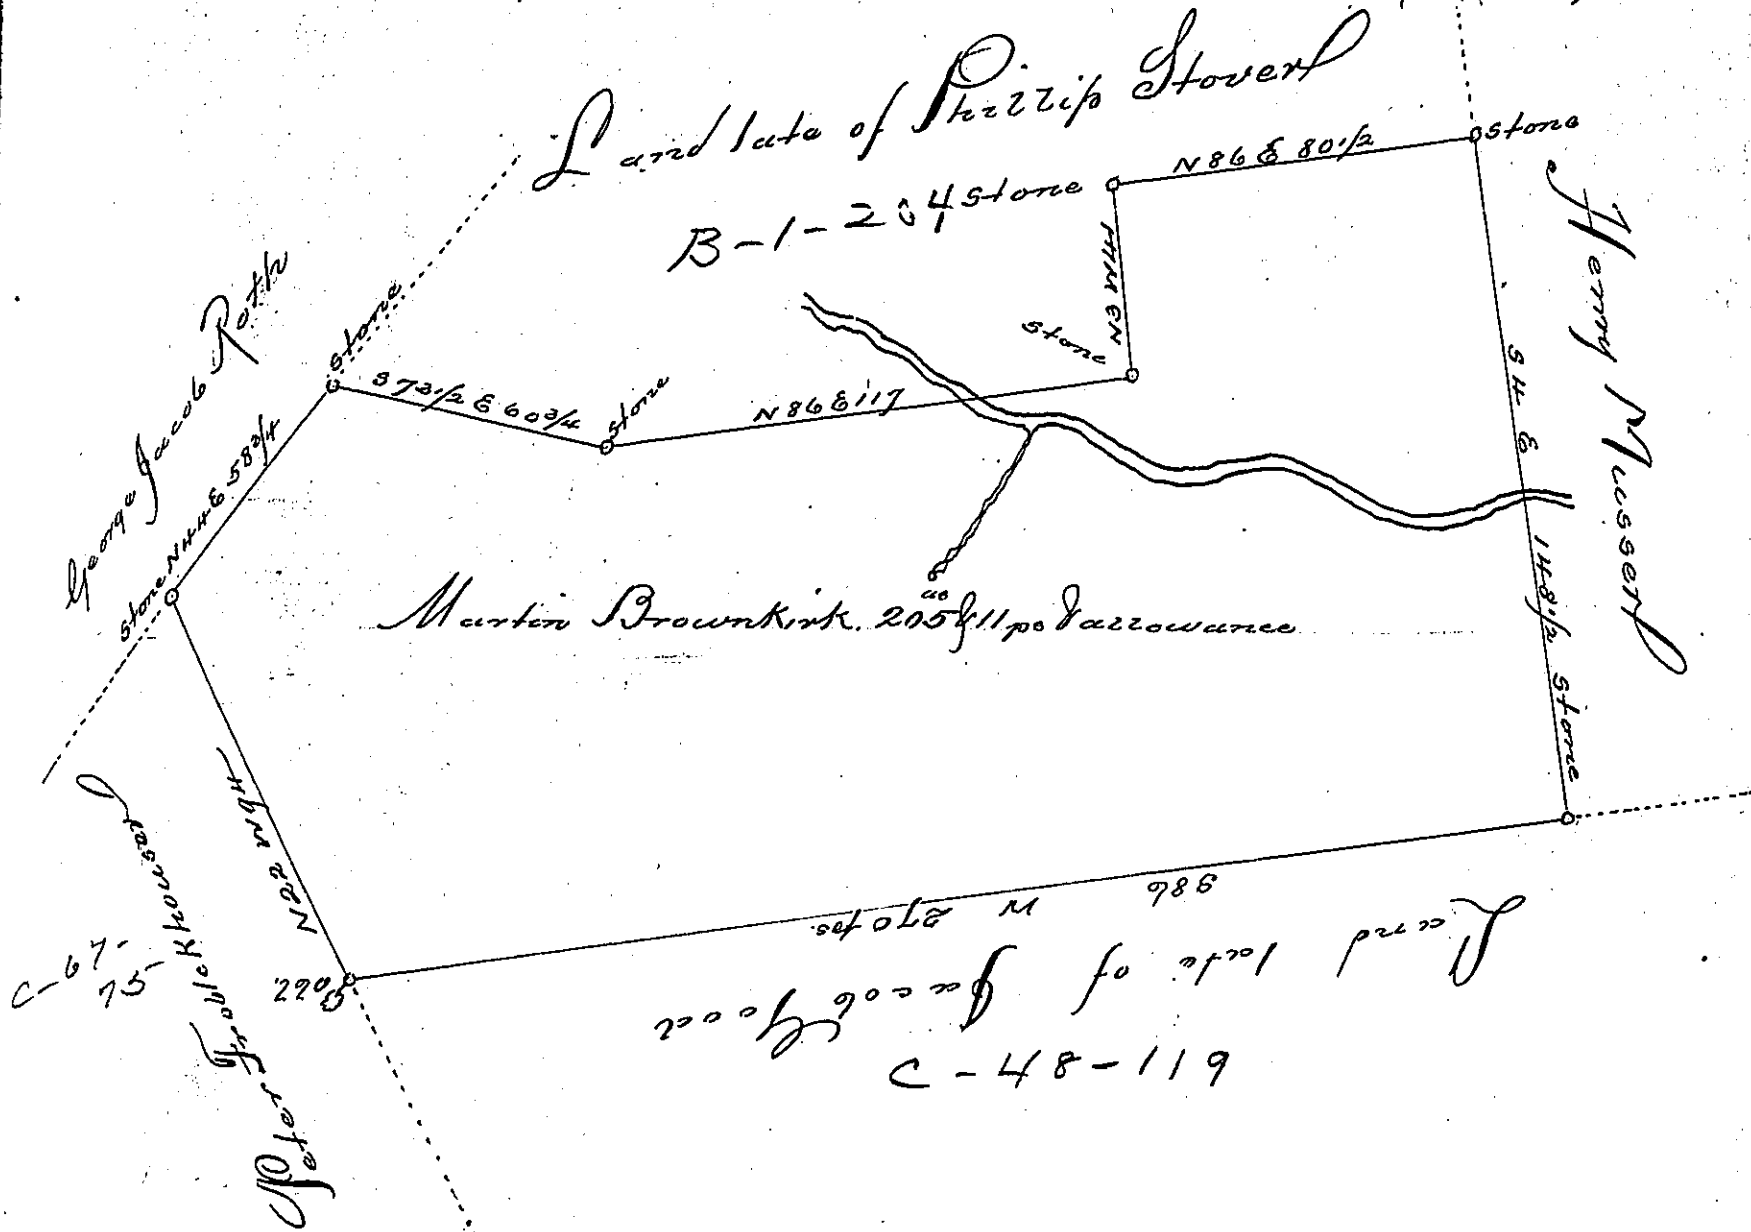 Land late of Phillip Stover
B-1-204
stone
N 86 E 80 1/2
stone
Henry Musser
S 4 E 148 1/2
stone
N3W47
stone
N 86 E 117
stone
S 72 1/2 E 60 3/4
stone
George Jacob Roth
N 44 E 58 3/4
stone
Martin Brownkirk. 205 ac & 11 po & allowance
N 22 W 94
Peter
C-67-
75
S 86 W 270 ps.
Land late of Jacob Good
C-48-119